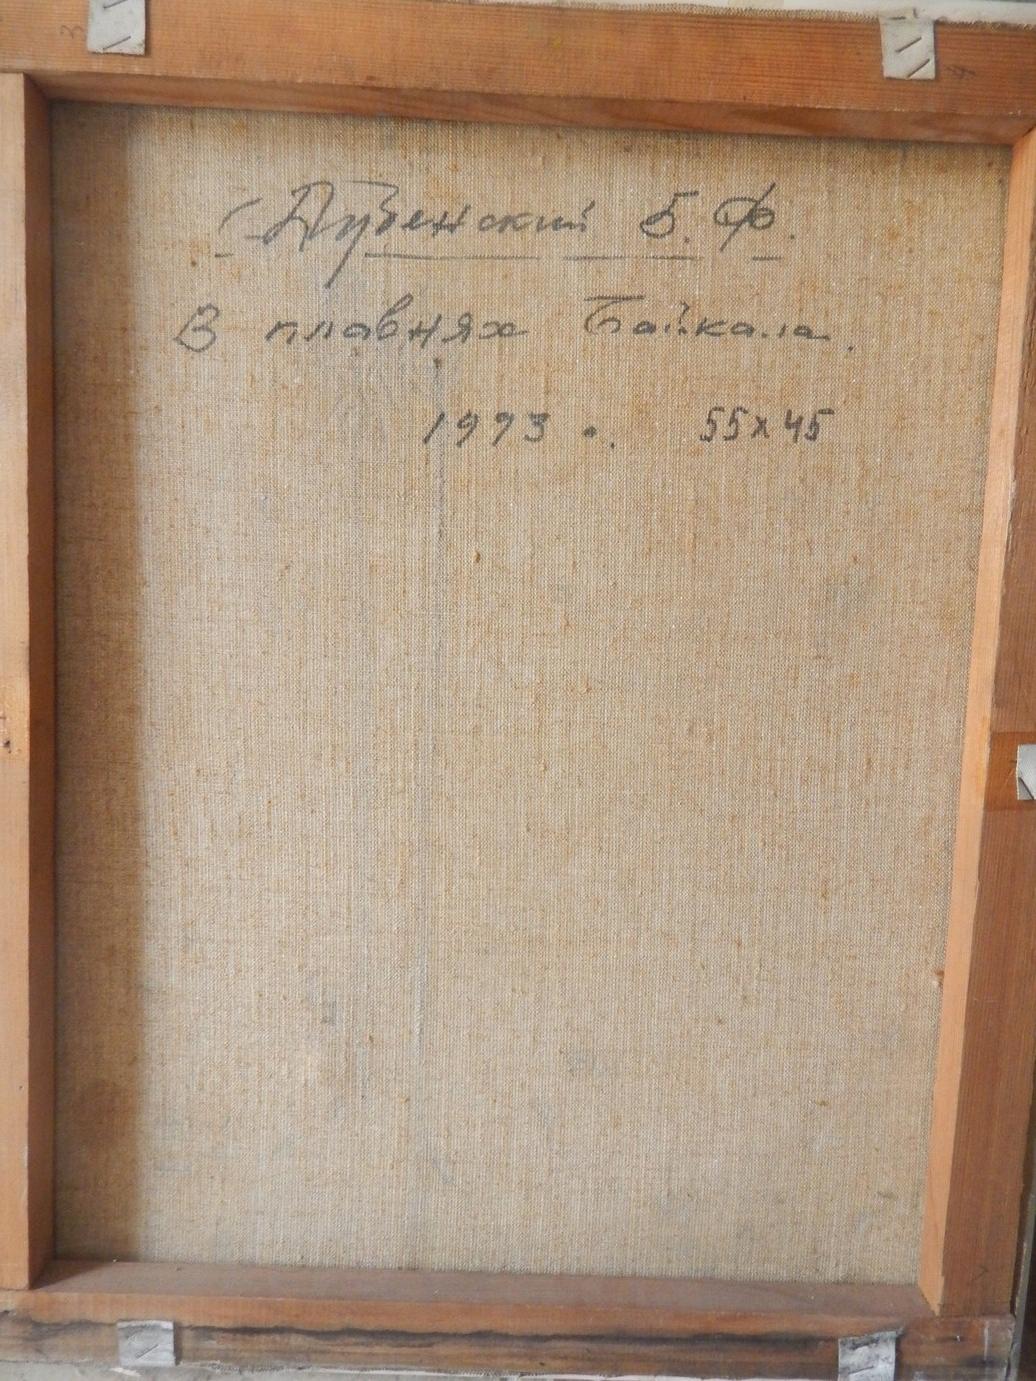 Дубенский Б. Ф.
В плавнях Байкала.
1993 . 55x45